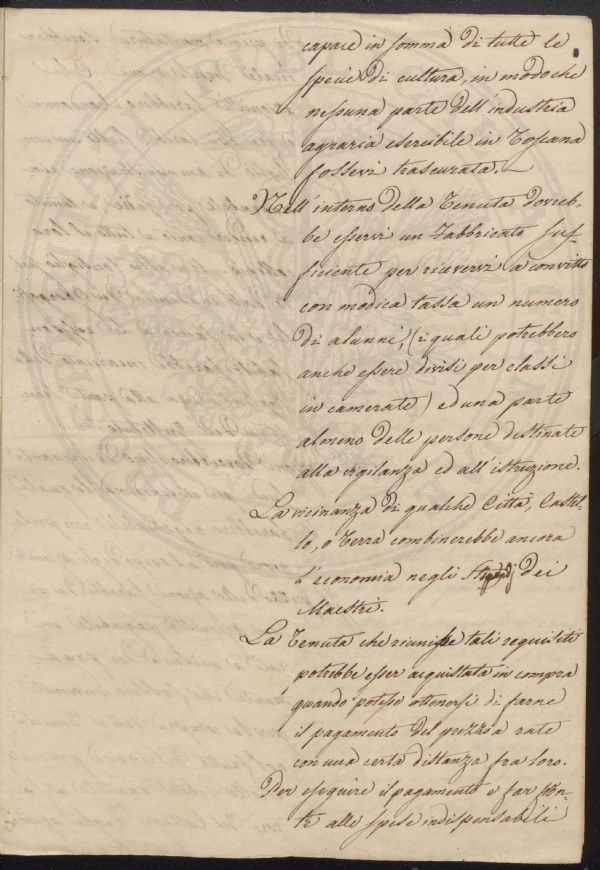 capace in somma di tutte le
specie di cultura, in modo che
nessuna parte dell'industria
agraria esercibile in Toscana
fossevi trascurata. —
Nell'interno della Tenuta dovreb-
be esservi un Fabbricato suf-
ficiente per ricevervi a convitto
con modica tassa un numero
di alunni, (i quali potrebbero
anche essere divisi per classi
in camerate) ed una parte
almeno delle persone destinate
alla vigilanza ed all'istruzione.
La vicinanza di qualche Città, Castel-
lo, o Terra combinerebbe ancora
l'economia negli stipendj dei
Maestri.
La Tenuta che riunisse tali requisiti
potrebbe esser acquistata in compra
quando potesse ottenersi di farne
il pagamento del prezzo a rate
con una certa distanza fra loro.
Per eseguire il pagamento e far fron-
te alle spese indispensabili